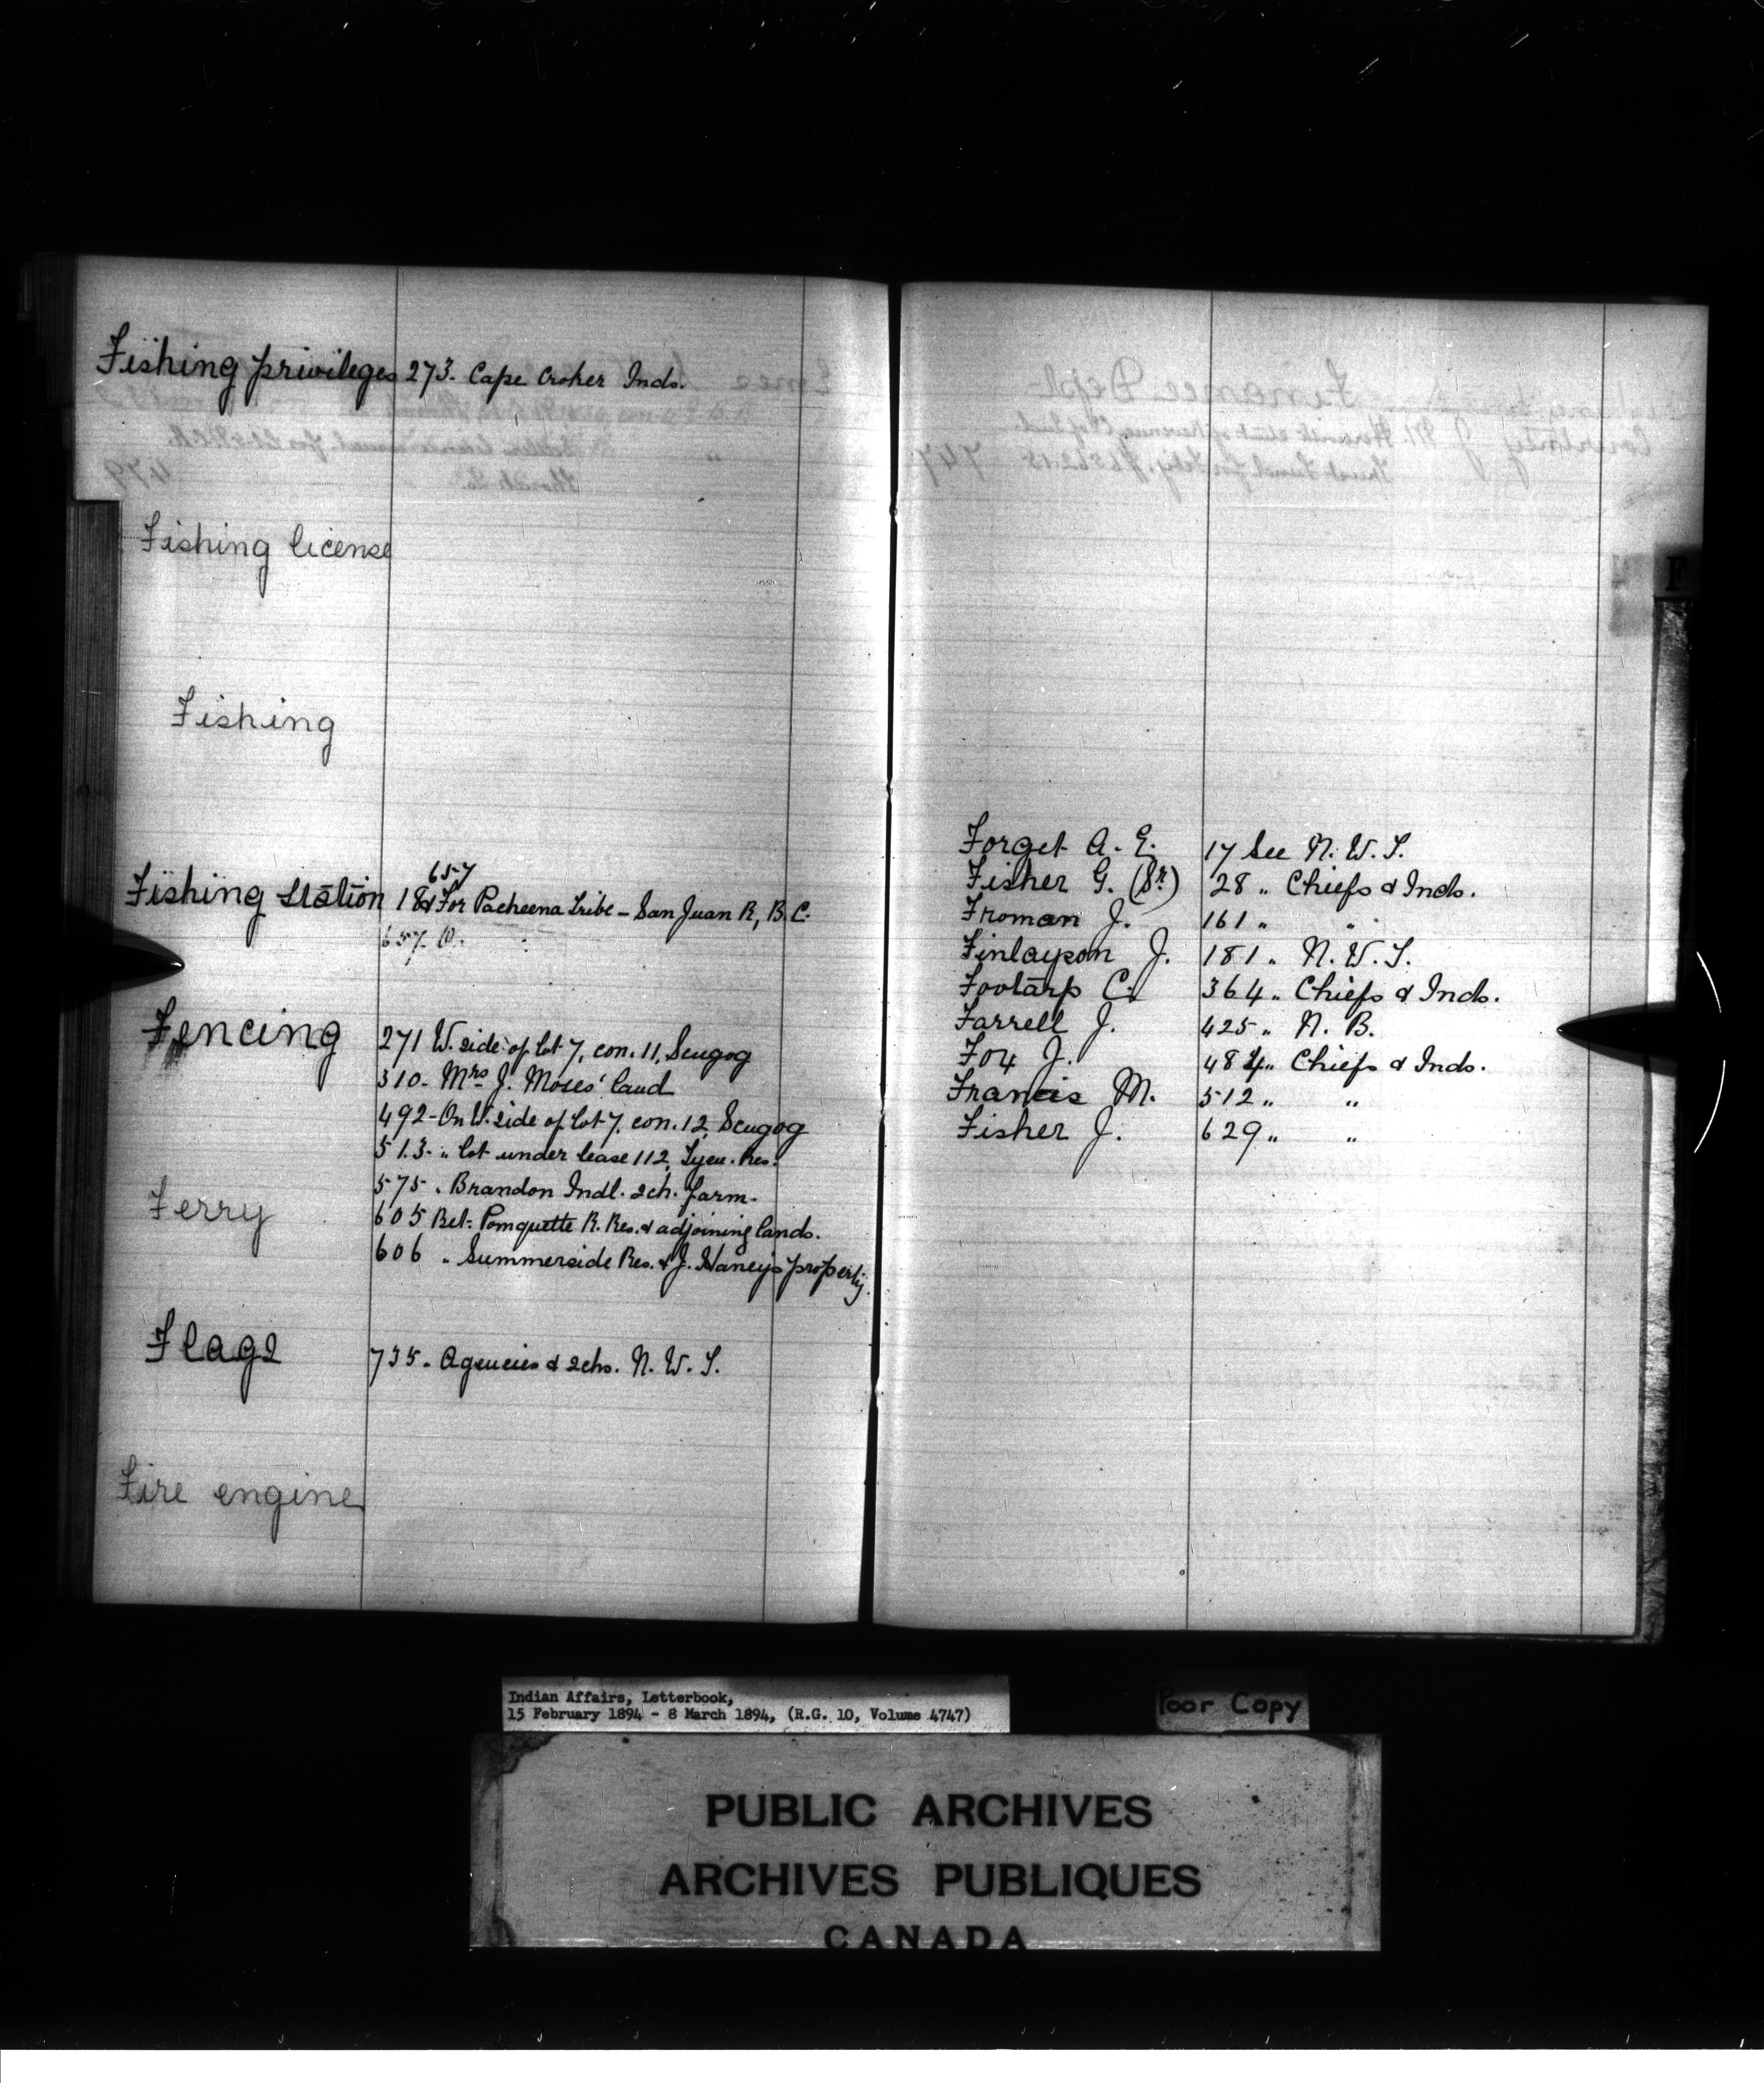 Fishing privileges 273. Cape Croker Inds.
Fishing license
Fishing
657
Fishing Station 18 & For Pacheena Tribe - San Juan R, B.C.
657
Fencing
271 W. side of lot 7, con. 11, Scugog
310 - Mrs J. Moses' land
492 - On W. side of lot 7, con. 12, Scugog
513 - " lot under lease 112, Tyen. Res.
575 . Brandon Indl. Sch. farm.
Ferry
605 Bet. Pomquette R. Res. & adjoining lands.
606 " Summerside Res. & J. Haney's property.
Flags 735 - Agencies & Schs. N. W. T.
Fire engine
F
Forget A. E. 17 See N. W. T.
Fisher G. (Sr) 28 " Chiefs & Inds.
Froman J. 161 " "
Finlayson J. 181 " N. W. T.
Footarp C. 364 " Chiefs & Inds.
Farrell J. 425 " N. B.
Fox J. 484 " Chiefs & Inds.
Francis M. 512 " "
Fisher J. 629 " "
Indian Affairs, Letterbook,
15 February 1894 - 8 March 1894, (R.G. 10, Volume 4747)
Poor Copy
PUBLIC ARCHIVES
ARCHIVES PUBLIQUES
CANADA